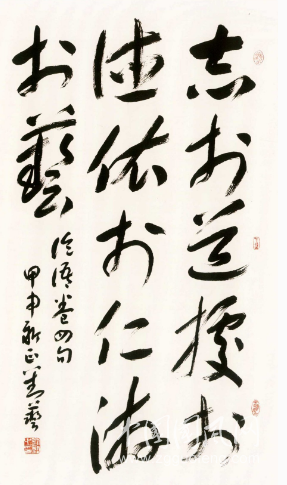 志於道據於
德依於仁游
於藝
論語卷四句
甲申新正